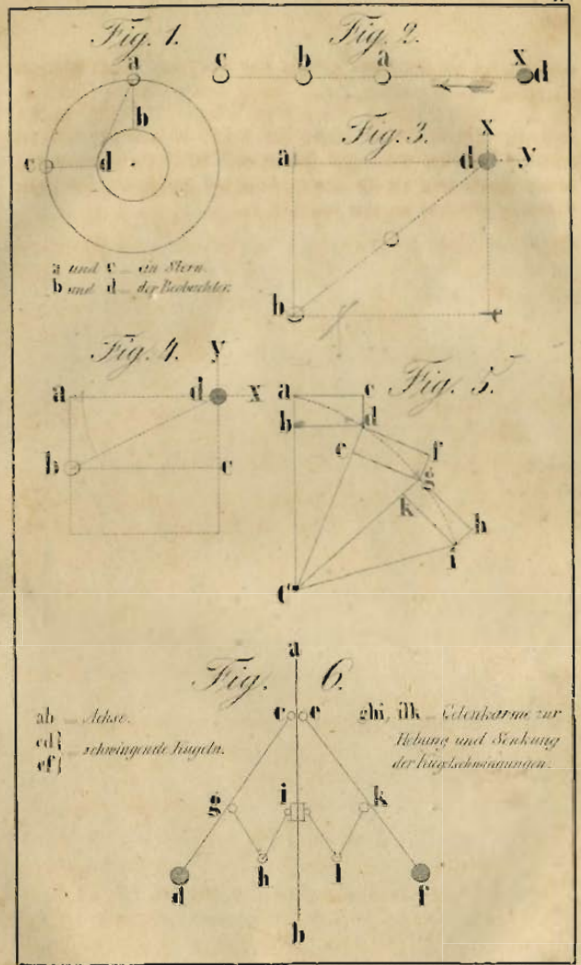 Fig. 1.
a
b
c d
a und c _ ein Stern.
b und d _ der Beobachter.
Fig. 2
c b a x d
Fig. 3.
x
a d y
b c
Fig. 4.
y
a d x
b c
Fig. 5.
a c
b d
e f
g
k h
i
C
Fig. 6.
a
ab _ Achse.
cd}
ef} _ schwingende Kugeln.
c e
ghi, ilk _ Gelenkarme zur
Hebung und Senkung
der Kugelschwingungen.
g i k
h l
d f
b